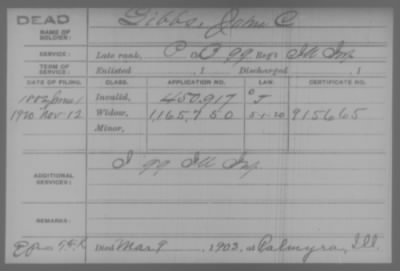 DEAD
NAME OF SOLDIER: Gibbs, John C.
SERVICE: Late rank, P Co. B 99 Reg't Ill Inf.
TERM OF SERVICE: Enlisted , 1 Discharged , 1
DATE OF FILING. CLASS. APPLICATION NO. LAW. CERTIFICATE NO.
1882 June 1 Invalid, 450,917
1920 Nov 12 Widow, 1,165,750 5-1-20 915665
Minor,
ADDITIONAL SERVICES: I 99 Ill Inf
REMARKS:
Died Mar 9, 1903, at Palmyra, Ill.